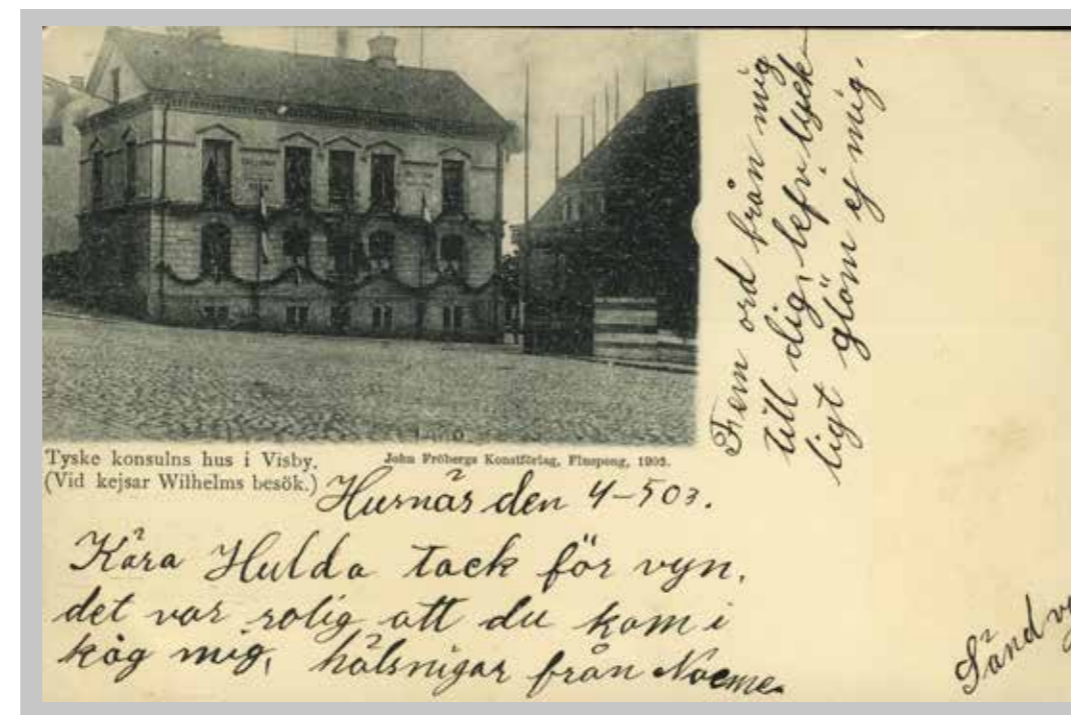 Tyske konsulns hus i Visby.
(Vid kejsar Wilhelms besök.)
John Fröbergs Konstförlag, Finspong, 1902.
Hursnäs den 4-503.
Kära Hulda tack för vyn.
det var rolig att du kom i
håg mig, hälsnigar från Noeme.
Fem ord från mig
till dig, lefv lyck
ligt glöm ej mig.
Sänd